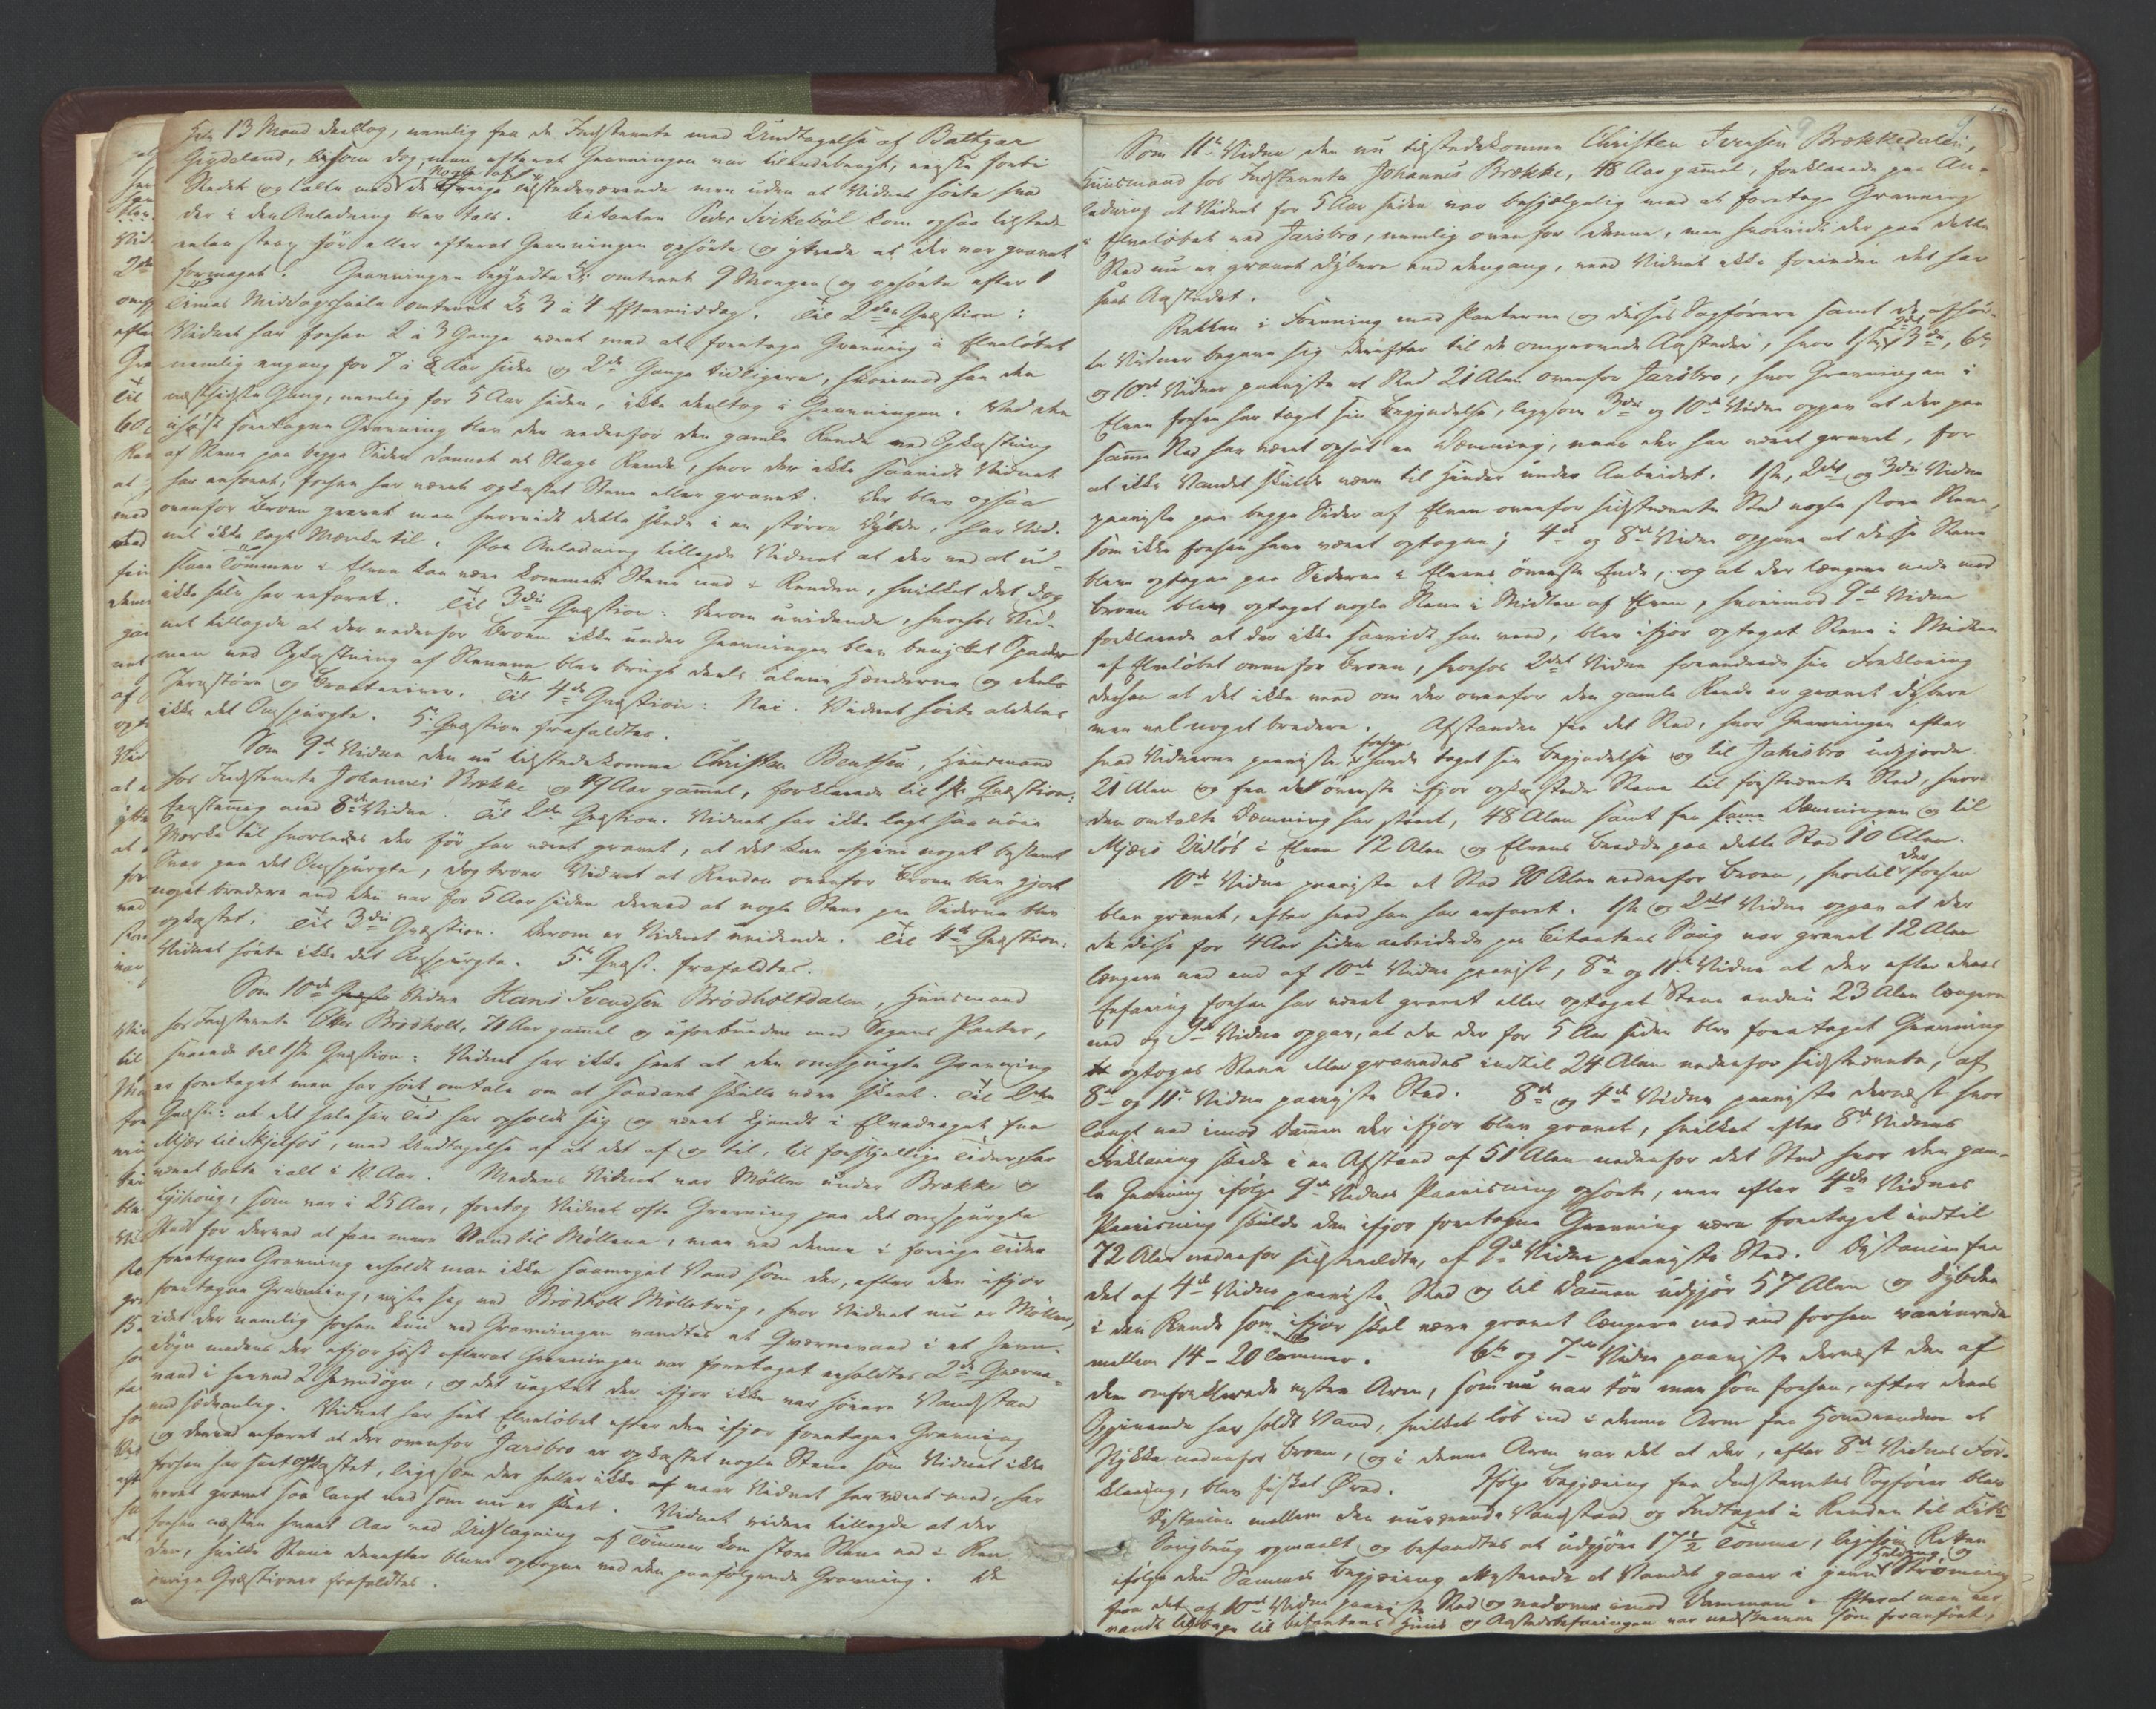 13 Mand deeltog, nemlig fra de Indstevnte med Undtagelse af Battgar
Gryteland, som dog, men efterat Gravningen var tilendebragt, reiste forbi
Stedet og talte med de Nogle af tilstedeværende men uden at Vidnet hørte hvad
der i den Anledning blev talt. Citanten Peder Svikebøl kom ogsaa tilstede
enten strax før eller efterat Gravningen ophørte og ytrede at der var gravet
formeget. Gravningen begyndte Kl. omtrent 9 Morgen og ophørte efter 1
Times Middagshvile omtrent Kl. 3 a 4 Eftermiddag. Til 2den Qvæstion:
Vidnet har forhen 2 a 3 Gange været med at foretage Gravning i Elveløbet
nemlig engang for 7 a 8 Aar siden og 2de Gange tidligere, hvorimod han den
næstsidste Gang, nemlig for 5 Aar siden, ikke deeltog i Gravningen. Ved den
ihøst foretagne Gravning blev der nedenfor den gamle Rende ved Opkastning
af Stene paa begge Sider dannet et Slags Rende, hvor der ikke saavidt Vidnet
har erfaret, forhen har været opkastet Stene eller gravet. Der blev ogsaa
ovenfor Broen gravet men hvorvidt dette skede i en større Dybde, har Vid-
net ikke lagt Mærke til. Paa Anledning tillagde Vidnet at der ved at ud-
slaae Tømmer i Elven kan være kommen Stene ned i Renden, hvilket det dog
ikke selv har erfaret. Til 3die Qvæstion: Derom uvidende, hvorhos Vid-
net tillagde at der nedenfor Broen ikke under Gravningen blev benyttet Spader
men ved Opkastning af Stenene blev brugt deels alene Hænderne og deels
Jernstøre og Brækstænger. Til 4de Qvæstion: Nei. Vidnet hørte aldeles
ikke det Omspurgte. 5te Qvæstion frafaldtes.
Som 9de Vidne den nu tilstedekomne Christen Bentsen, Huusmand
hos Indstevnte Johannes Brække og 49 Aar gammel, forklarede til 1ste Qvæstion:
Eenstemmig med 8de Vidne. Til 2den Qvæstion. Vidnet har ikke lagt saa nøie
Mærke til hvorledes der før har været gravet, at det kan afgive noget bestemt
Svar paa det Omspurgte, dog troer Vidnet at Renden ovenfor Broen blev gjort
noget bredere end den var for 5 Aar siden derved at nogle Stene paa Siderne blev
opkastet. Til 3die Qvæstion. Derom er Vidnet uvidende. Til 4de Qvæstion:
Vidnet hørte ikke det Omspurgte. 5te Qvæst. frafaldtes.
Som 10de Vidne Hans Svendsen Brødholtdalen, Huusmand
hos Indstevnte Ole Brødholt, 71 Aar gammel og uforbunden med Sagens Parter,
svarede til 1ste Qvæstion: Vidnet har ikke seet at den omspurgte Gravning
er foretaget men har hørt omtale om at saadant skulle være skeet. Til 2den
Qvæst: at det hele sin Tid har opholdt sig og været kjendt i Elvedraget fra
Mjær til Skjelfos, med Undtagelse af at det af og til, til forskjellige Tider har
været borte ialt i 10 Aar. Medens Vidnet var Møller under Brække og
Lyshoug, som var i 25 Aar, foretog Vidnet ofte Gravning paa det omspurgte
Sted for derved at faae mere Vand til Møllene, men ved denne i forrige Tider
foretagne Gravning erholdt man ikke saameget Vand som der, efter den ifjor
foretagne Gravning, viste sig ved Brødholt Møllebrug, hvor Vidnet nu er Møller,
idet der nemlig forhen kun ved Gravningen vandtes et Qværnevand i et
døgn medens der ifjor Høst efterat Gravningen var foretaget erholdtes 2de Qværne-
vand i hvert Døgn, og det uagtet der ifjor ikke var høiere Vandstand
end sædvanlig. Vidnet har seet Elveløbet efter den ifjor foretagne Gravning
og derved erfaret at der ovenfor Jarisbro er opkastet nogle Stene som Vidnet ikke
forhen har seet opkastet, ligesom der heller ikke naar Vidnet har været med, har
været gravet saa langt ned som nu er skeet. Vidnet videre tillagde at der
forhen næsten hvert Aar ved Udslagning af Tømmer kom store Stene ned i Ren-
den, hvilke Stene derefter bleve optagne ved den paafølgende Gravning. De
øvrige Qvæstioner frafaldtes.
Som 11te Vidne den nu tilstedekomne Christen Iversen Brækkedalen,
Huusmand hos Indstevnte Johannes Brække, 48 Aar gammel, forklarede paa An-
ledning at Vidnet for 5 Aar siden var behjælpelig med at foretage Gravning
i Elveløbet ved Jarisbro, nemlig ovenfor denne, men hvorvidt der paa dette
Sted nu er gravet dybere end dengang, veed Vidnet ikke forinden det har
seet Aastedet.
Retten i Forening med Parterne og disses Sagførere samt de afhør-
te Vidner begave sig derefter til de omprovede Aasteder, hvor 1ste, 2det, 3die, 6te
og 10de Vidner paaviste et Sted 21 Alen ovenfor Jarisbro, hvor Gravningen i
Elven forhen har taget sin Begyndelse, ligesom 3die og 10de Vidne opgav at der paa
samme Sted har været opsat en Dæmning, naar der har været gravet, for
at ikke Vandet skulde være til Hinder under Arbeidet. 1ste, 2det og 3die Vidne
paaviste paa begge Sider af Elven ovenfor sidstnævnte Sted nogle store Stene,
som ikke forhen have været optagne; 4de og 8de Vidne opgave at disse Stene
bleve optagne paa Siderne i Elvens øverste Ende, og at der længere nede mod
Broen blev optaget nogle Stene i Midten af Elven, hvorimod 9de Vidne
forklarede at der ikke saavidt han veed, blev ifjor optaget Stene i Midten
af Elveløbet ovenfor Broen, hvorhos 2det Vidne forandrede sin Forklaring
derhen at det ikke veed om der ovenfor den gamle Rende er gravet dybere
men vel noget bredere. Afstanden fra det Sted, hvor Gravningen efter
hvad Vidnerne paaviste forhen havde taget sin Begyndelse og til Jarisbro udgjorde
21 Alen og fra de øverste ifjor opkastede Stene til førstnævnte Sted, hvor
den omtalte Dæmning har staaet, 48 Alen samt fra samme Dæmningen og til
Mjærs Udløb i Elven 12 Alen og Elvens Bredde paa dette Sted 10 Alen.
10de Vidne paaviste et Sted 90 Alen nedenfor Broen, hvortil der forhen
blev gravet, efter hvad han har erfaret. 1ste og 2det Vidne opgav at der
da disse for 4 Aar siden arbeidede paa Citantens Saug var gravet 12 Alen
længere ned end af 10de Vidne paavist, 8de og 11te Vidne at der efter deres
Erfaring forhen har været gravet eller optaget Stene endnu 23 Alen længere
ned og 9de Vidne opgav, at da der for 5 Aar siden blev foretaget Gravning
optoges Stene eller gravedes indtil 24 Alen nedenfor sidstnævnte, af
8de og 11te Vidne paaviste Sted. 8de og 4de Vidne paaviste dernæst hvor
langt ned imod Dammen der ifjor blev gravet, hvilket efter 8de Vidnes
Forklaring skede i en Afstand af 51 Alen nedenfor det Sted hvor den gam-
le Gravning ifølge 9de Vidnes Paavisning ophørte, men efter 4de Vidnes
Paavisning skulde den ifjor foretagne Gravning være foretaget indtil
72 Alen nedenfor sidstmeldte, af 9de Vidne paaviste Sted. Distancen fra
det af 4de Vidne paaviste Sted og til Dammen udgjør 57 Alen og Dybden
i den Rende som ifjor skal være gravet længere ned end forhen varierede
mellem 14 - 20 Tommer. 6te og 7de Vidne paaviste dernæst den af
dem omforklarede vestre Arm, som nu var tør men som forhen, efter deres
Opgivende har holdt Vand, hvilket løb ind i denne Arm fra Hovedrenden et
Stykke nedenfor Broen, og i denne Arm var det at der, efter 8de Vidnes For-
klaring, blev fisket Ørred. Ifølge Begjæring fra Indstevntes Sagfører blev
Distancen mellem den nuværende Vandstand og Indtaget i Renden til Cit:s
Saugbrug opmaalt og befandtes at udgjøre 17½ Tomme, ligesom Retten
ifølge den Sammes Begjæring attesterede at Vandet gaaer i jævn Helding og Strømning
fra det af 10de Vidne paaviste Sted og nedover imod Dammen. Efterat man var
vendt tilbage til Citantens Huus og Aastedsbefaringen var nedskreven som foranført,